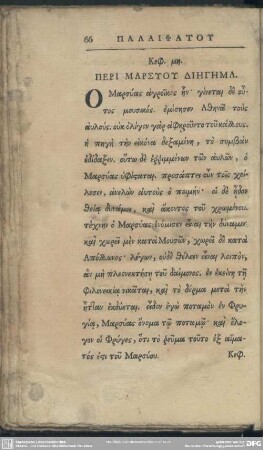 66 ΠΑΛΑΙΦΑΤΟΥ
Κεφ. μη.
ΠΕΡΙ ΜΑΡΣΥΟΥ ΔΙΗΓΗΜΑ.
Ο Μαρσύας ἀγροῖκος ἦν· γίνεται δὲ οὕ-
τος μουσικός. ἐμίσησεν Ἀθηνᾶ τοὺς
αὐλούς. οὐκ ὀλίγον γὰρ ἀφῃροῦντο τοῦ κάλλους.
ἡ πηγὴ τὴν εἰκόνα δεξαμένη, τὸ συμβὰν
ἐδίδαξεν. οὕτω δὲ ἐῤῥιμμένων τῶν αὐλῶν, ὁ
Μαρσύας ὑφίσταται. προσάπτει οὖν τοῖς χεί-
λεσιν, ἀνελὼν αὐτοὺς ὁ ποιμήν· οἱ δὲ ᾖδον
θείᾳ δυνάμει, καὶ ἄκοντος τοῦ χρωμένου.
τέχνην ὁ Μαρσύας ἐνόμισεν εἶναι τὴν δύναμιν·
καὶ χωρεῖ μὲν κατὰ Μουσῶν, χωρεῖ δὲ κατὰ
Ἀπόλλωνος· λέγων, οὐδὲ θέλειν εἶναι λοιπὸν,
ἂν μὴ πλεονεκτήσῃ τοῦ δαίμονος. ἐν ἐκείνῃ τῇ
φιλονεικίᾳ νικᾶται, καὶ τὸ δέρμα μετὰ τὴν
ἧτταν ἐκδύεται. εἶδον ἐγὼ ποταμὸν ἐν Φρυ-
γίᾳ, Μαρσύας ὄνομα τῷ ποταμῷ· καὶ ἔλε-
γον οἱ Φρύγες, ὅτι τὸ ῥεῦμα τοῦτο ἐξ αἵμα-
τός ἐστι τοῦ Μαρσύου.
Κεφ.